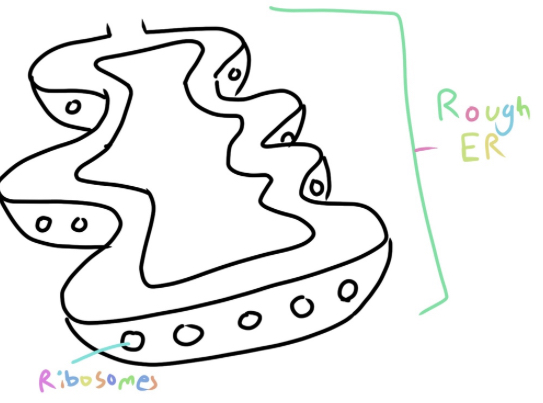 Rough
ER
Ribosomes